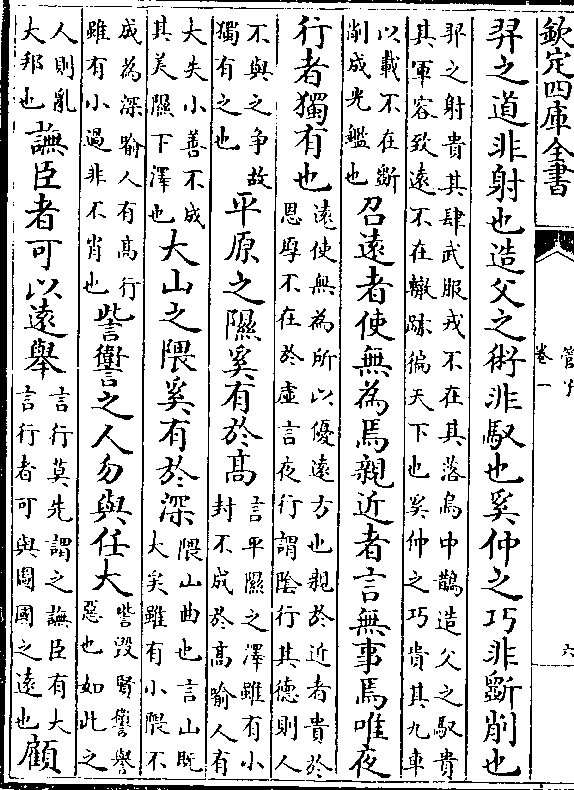 欽定四庫全書
管子
卷一
六
羿之道非射也造父之術非馭也奚仲之巧非斲削也
羿之射貴其肆武服戎不在其落烏中鵲造父之馭貴
其軍容致遠不在轍跡徧天下也奚仲之巧貴其九車
以載不在斲
削成光鑑也
召遠者使無為焉親近者言無事焉唯夜
行者獨有也
遠使無為所以優遠方也親於近者貴於
恩厚不在於虛言夜行謂陰行其德則人
不與之争故
獨有之也
平原之隰奚有於髙
言平隰之澤雖有小
封不成於髙喻人有
大失小善不成
其美隰下澤也
大山之隈奚有於深
隈山曲也言山既
大矣雖有小隈不
成為深喻人有髙行
雖有小過非不肖也
訾讆之人勿與任大
訾毁賢讆譽
惡也如此之
人則亂
大邦也
譕臣者可以遠舉
言行莫先謂之譕臣有大
言行者可與圖國之遠也
顧